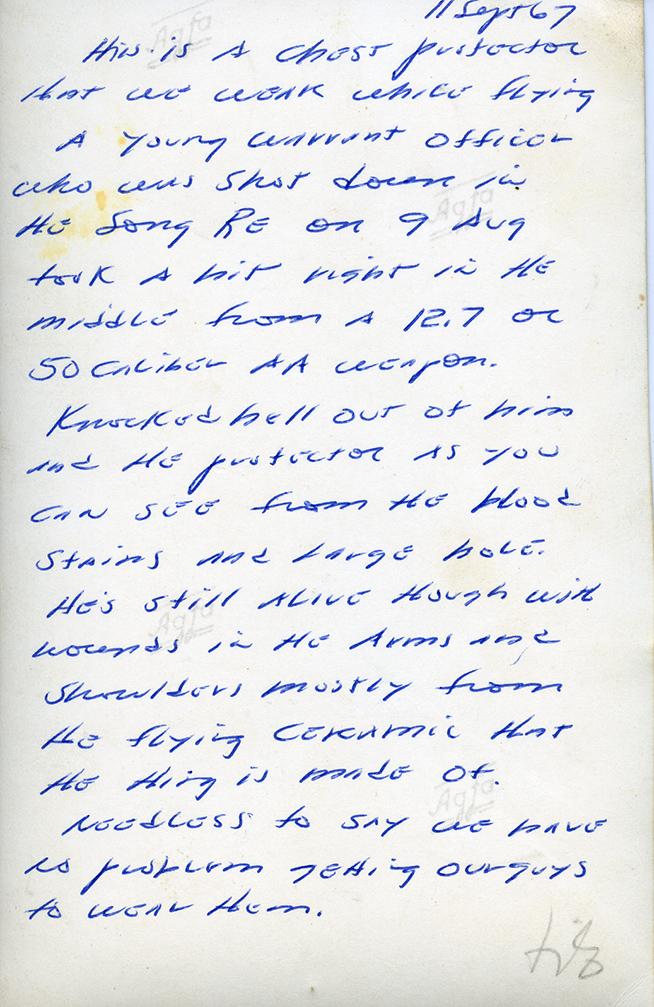 11 Sept 67
This is A chest protector
that we wear while flying
A young warrant officer
who was shot down in
the Song Re on 9 Aug
took A hit right in the
middle from A 12.7 or
50 caliber AA weapon.
Knocked hell out of him
and the protector as you
can see from the blood
stains and large hole.
He's still alive though with
wounds in the arms and
shoulders mostly from
the flying ceramic that
the thing is made of.
Needless to say we have
no problem getting our guys
to wear them.
Agfa
Agfa
Agfa
Agfa